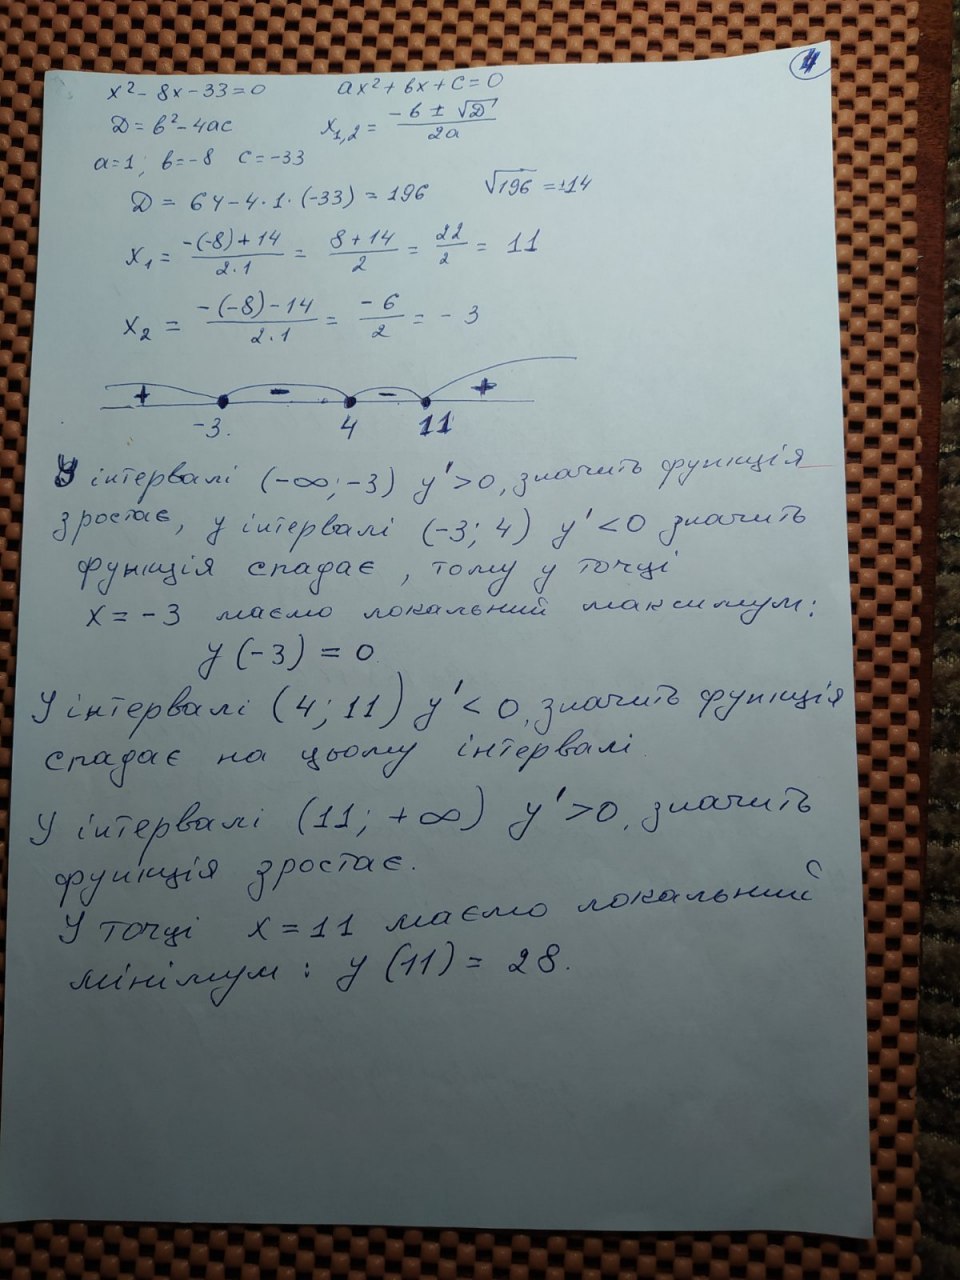 4
x² - 8x - 33 = 0 ax² + bx + c = 0
D = b² - 4ac x₁,₂ = (-b ± √D) / 2a
a = 1; b = -8 c = -33
D = 64 - 4·1·(-33) = 196 √196 = ±14
x₁ = (-(-8) + 14) / 2·1 = (8 + 14) / 2 = 22/2 = 11
x₂ = (-(-8) - 14) / 2·1 = -6/2 = -3
+ - - +
-3. 4 11
У інтервалі (-∞; -3) y' > 0, значить функція
зростає, у інтервалі (-3; 4) y' < 0 значить
функція спадає, тому у точці
x = -3 маємо локальний максимум:
y(-3) = 0
У інтервалі (4; 11) y' < 0, значить функція
спадає на цьому інтервалі.
У інтервалі (11; +∞) y' > 0, значить
функція зростає.
У точці x = 11 маємо локальний
мінімум: y(11) = 28.